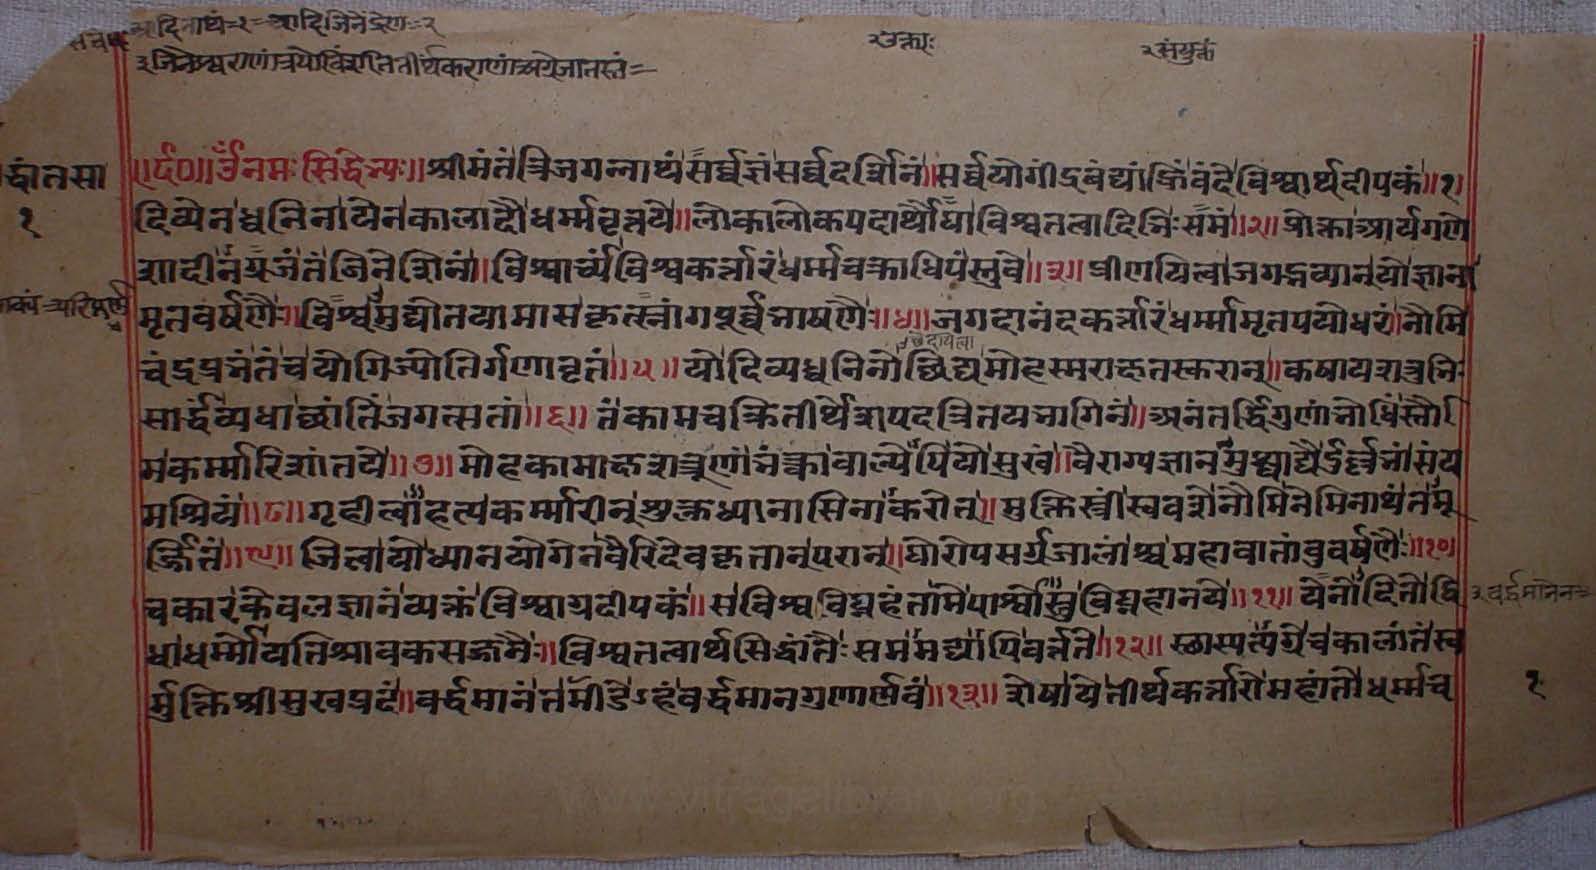 आदिनाथं=२=आदिजिनेंद्रेण=२
३जिनेश्वराणांत्रयोविंशतितीर्थकराणांअग्रेजातस्तं=
२उक्ताः
२संयुक्तं
द्धांतसा
१
॥र्द०॥ॐनमःसिद्धेभ्यः॥श्रीमंतंत्रिजगन्नाथंसर्व्वज्ञंसर्व्वदर्शिनं॥सर्व्वयोगींद्रवंद्यांह्रिंवंदेविश्वार्थदीपकं॥१॥
दिव्येनध्वनिनायेनकालादौधर्म्मवृत्तये॥लोकालोकपदार्थौघाविश्वतत्वादिभिःसमं॥२॥प्रोक्ताआर्यगणे
शादीनग्रजंतंजिनेशिनां॥विश्वार्च्यंविश्वकर्त्तारंधर्म्मचक्राधिपंस्तुवे॥३॥प्रीणयित्वाजगद्भव्यान्योज्ञाना
मृतवर्षणैः॥विश्वमुद्योतयामासकृत्स्नांगपूर्व्वभाषणैः॥४॥जगदानंदकर्त्तारंधर्म्मामृतपयोधरं॥नौमि
चंद्रप्रभंतंचयोगिज्योतिर्गणावृतं॥५॥योदिव्यध्वनिनोछिद्यमोहस्मराक्षतस्करान्॥कषायशत्रुभिः
सार्द्धंव्यधाछांतिंजगत्सतां॥६॥तंकामचक्रितीर्थेशपदत्रितयभागिनं॥अनंतर्द्धिगुणांभोधिंस्तौ
मिकर्म्मारिशांतये॥७॥मोहकामाक्षशत्रूणांभंक्त्वाबाल्येपियोमुखं॥वैराग्यज्ञानमुख्याद्यैर्दुर्ल्लभांसंय
मश्रियं॥८॥गृहीत्वाहत्यकर्म्मारीन्शुक्लध्यानासिनाकरोत्॥मुक्तिस्त्रींस्ववशेनौमिनेमिनाथंतमू
र्ज्जितं॥९॥जित्वायोध्यानयोगेनवैरिदेवकृतान्परान्॥घोरोपसर्गजालांश्चमहावातांबुवर्षणैः॥१०॥
चकारकेवलज्ञानंव्यक्तंविश्वाग्रदीपकं॥सविश्वविघ्नहंतामेपार्श्वोस्तुविघ्नहानये॥११॥येनोदितोद्वि
३वर्द्धमानेन=
धाधर्म्मोयतिश्रावकसत्तमैः॥विश्वतत्वार्थसिद्धांतैःसममद्यापिवर्त्तते॥१२॥स्थास्यत्यग्रेचकालांतंस्व
र्मुक्तिश्रीसुखप्रदं॥वर्द्धमानंतमीडेऽहंवर्द्धमानगुणार्णवं॥१३॥शेषायेतीर्थकर्त्तारोमहांतोधर्म्मच
१
www.vitragelibrary.org